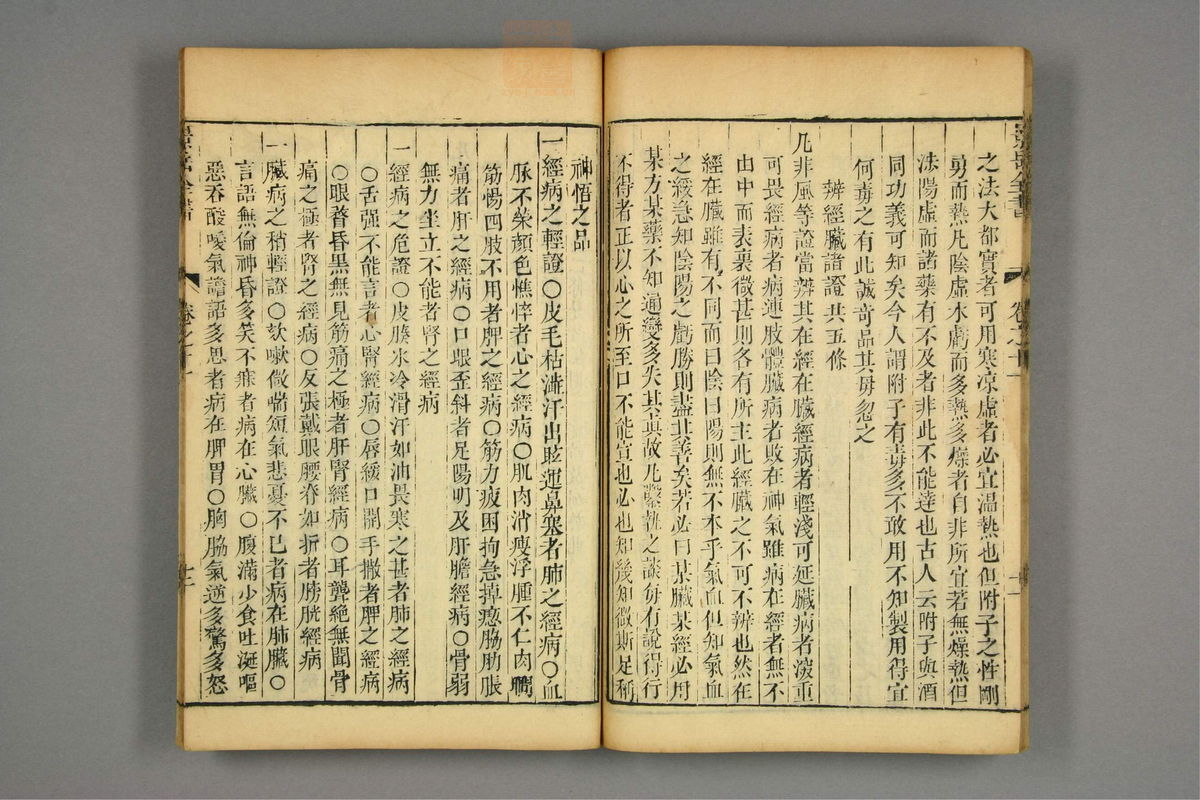 之法大都實者可用寒凉虛者必宜温熱也但附子之性剛
勇而熱凡陰虛水虧而多熱多燥者自非所宜若無燥熱但
渉陽虛而諸藥有不及者非此不能達也古人云附子與酒
同功義可知矣今人謂附子有毒多不敢用不知製用得宜
何毒之有此誠奇品其毋忽之
辨經臟諸證共五條
凡非風等證當辨其在經在臟經病者輕淺可延臟病者深重
可畏經病者病連肢體臟病者敗在神氣雖病在經者無不
由中而表裏微甚則各有所主此經臟之不可不辨也然在
經在臟雖有不同而曰陰曰陽則無不本乎氣血但知氣血
之緩急知陰陽之虧勝則盡其善矣若必曰某臟某經必用
某方某藥不知通變多失其眞故凡鑿執之談每有說得行
不得者正以心之所至口不能宣也必也知後知微斯足稱
神悟之品
一經病之輕證○皮毛枯澁汗出眩運鼻塞者肺之經病○血
脉不榮顔色憔悴者心之經病○肌肉消瘦浮腫不仁肉瞤
筋惕四肢不用者脾之經病○筋力疲困拘急掉瘛脇肋脹
痛者肝之經病○口眼歪斜者足陽明及肝膽經病○骨弱
無力坐立不能者腎之經病
一經病之危證○皮腠氷冷滑汗如油畏寒之甚者肺之經病
○舌强不能言者心腎經病○唇緩口開手撒者脾之經病
○眼瞀昏黑無見筋痛之極者肝腎經病○耳聾絶無聞骨
痛之極者腎之經病○反張戴眼腰脊如折者膀胱經病
一臟病之稍輕證○欬嗽微喘短氣悲憂不已者病在肺臟○
言語無倫神昏多笑不寐者病在心臟○腹滿少食吐涎嘔
惡吞酸噯氣譫語多思者病在脾胃○胸脇氣逆多驚多怒